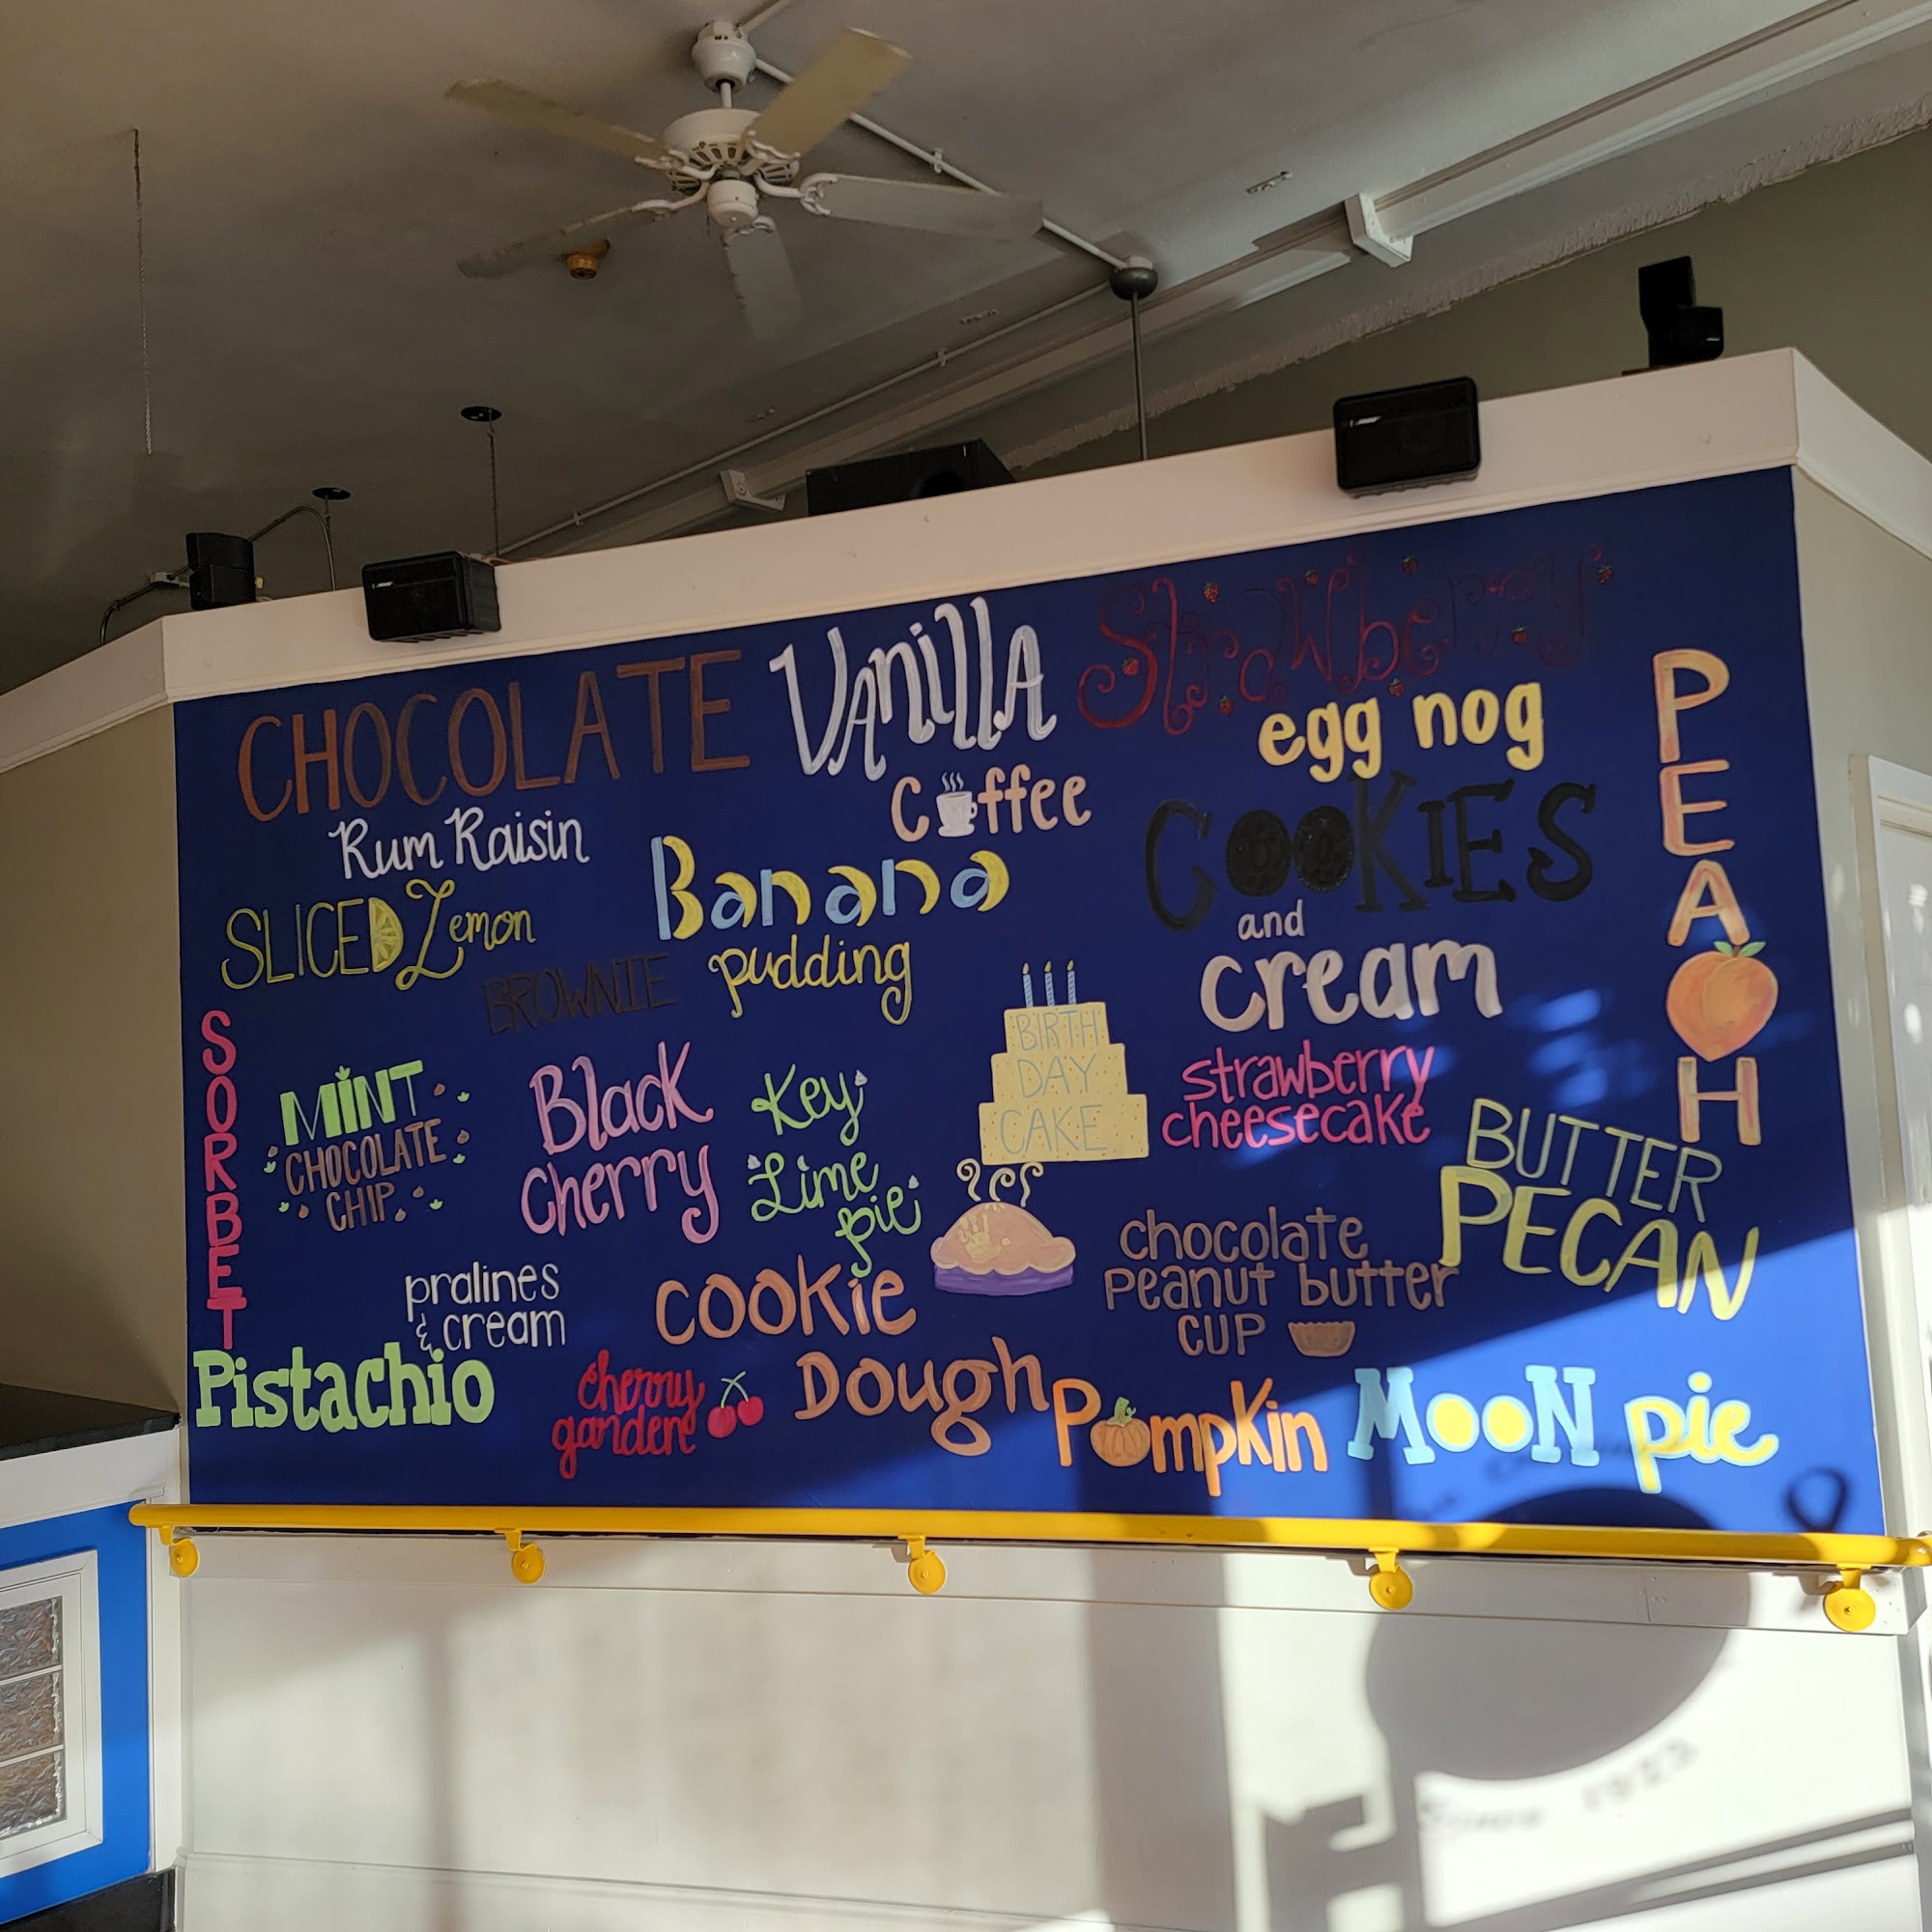 CHOCOLATE
Vanilla
Strawberry
egg nog
PEACH
Coffee
Rum Raisin
SLICED Lemon
Banana
pudding
BROWNIE
COOKIES
and
cream
SORBET
MINT
CHOCOLATE
CHIP
Black
Cherry
Key
Lime
pie
BIRTH
DAY
CAKE
strawberry
cheesecake
BUTTER
PECAN
chocolate
peanut butter
cup
pralines
& cream
cookie
Dough
Pistachio
cherry
garden
Pumpkin
MOON pie
Since 1923